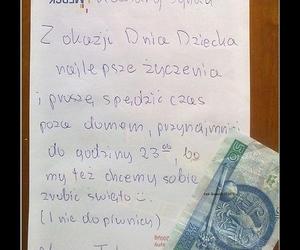 MERCK
Z okazji Dnia Dziecka
najlepsze życzenia
i proszę spędzić czas
poza domem, przynajmniej
do godziny 23⁰⁰, bo
my też chcemy sobie
zrobić święto ☺
(I nie do piwnicy)